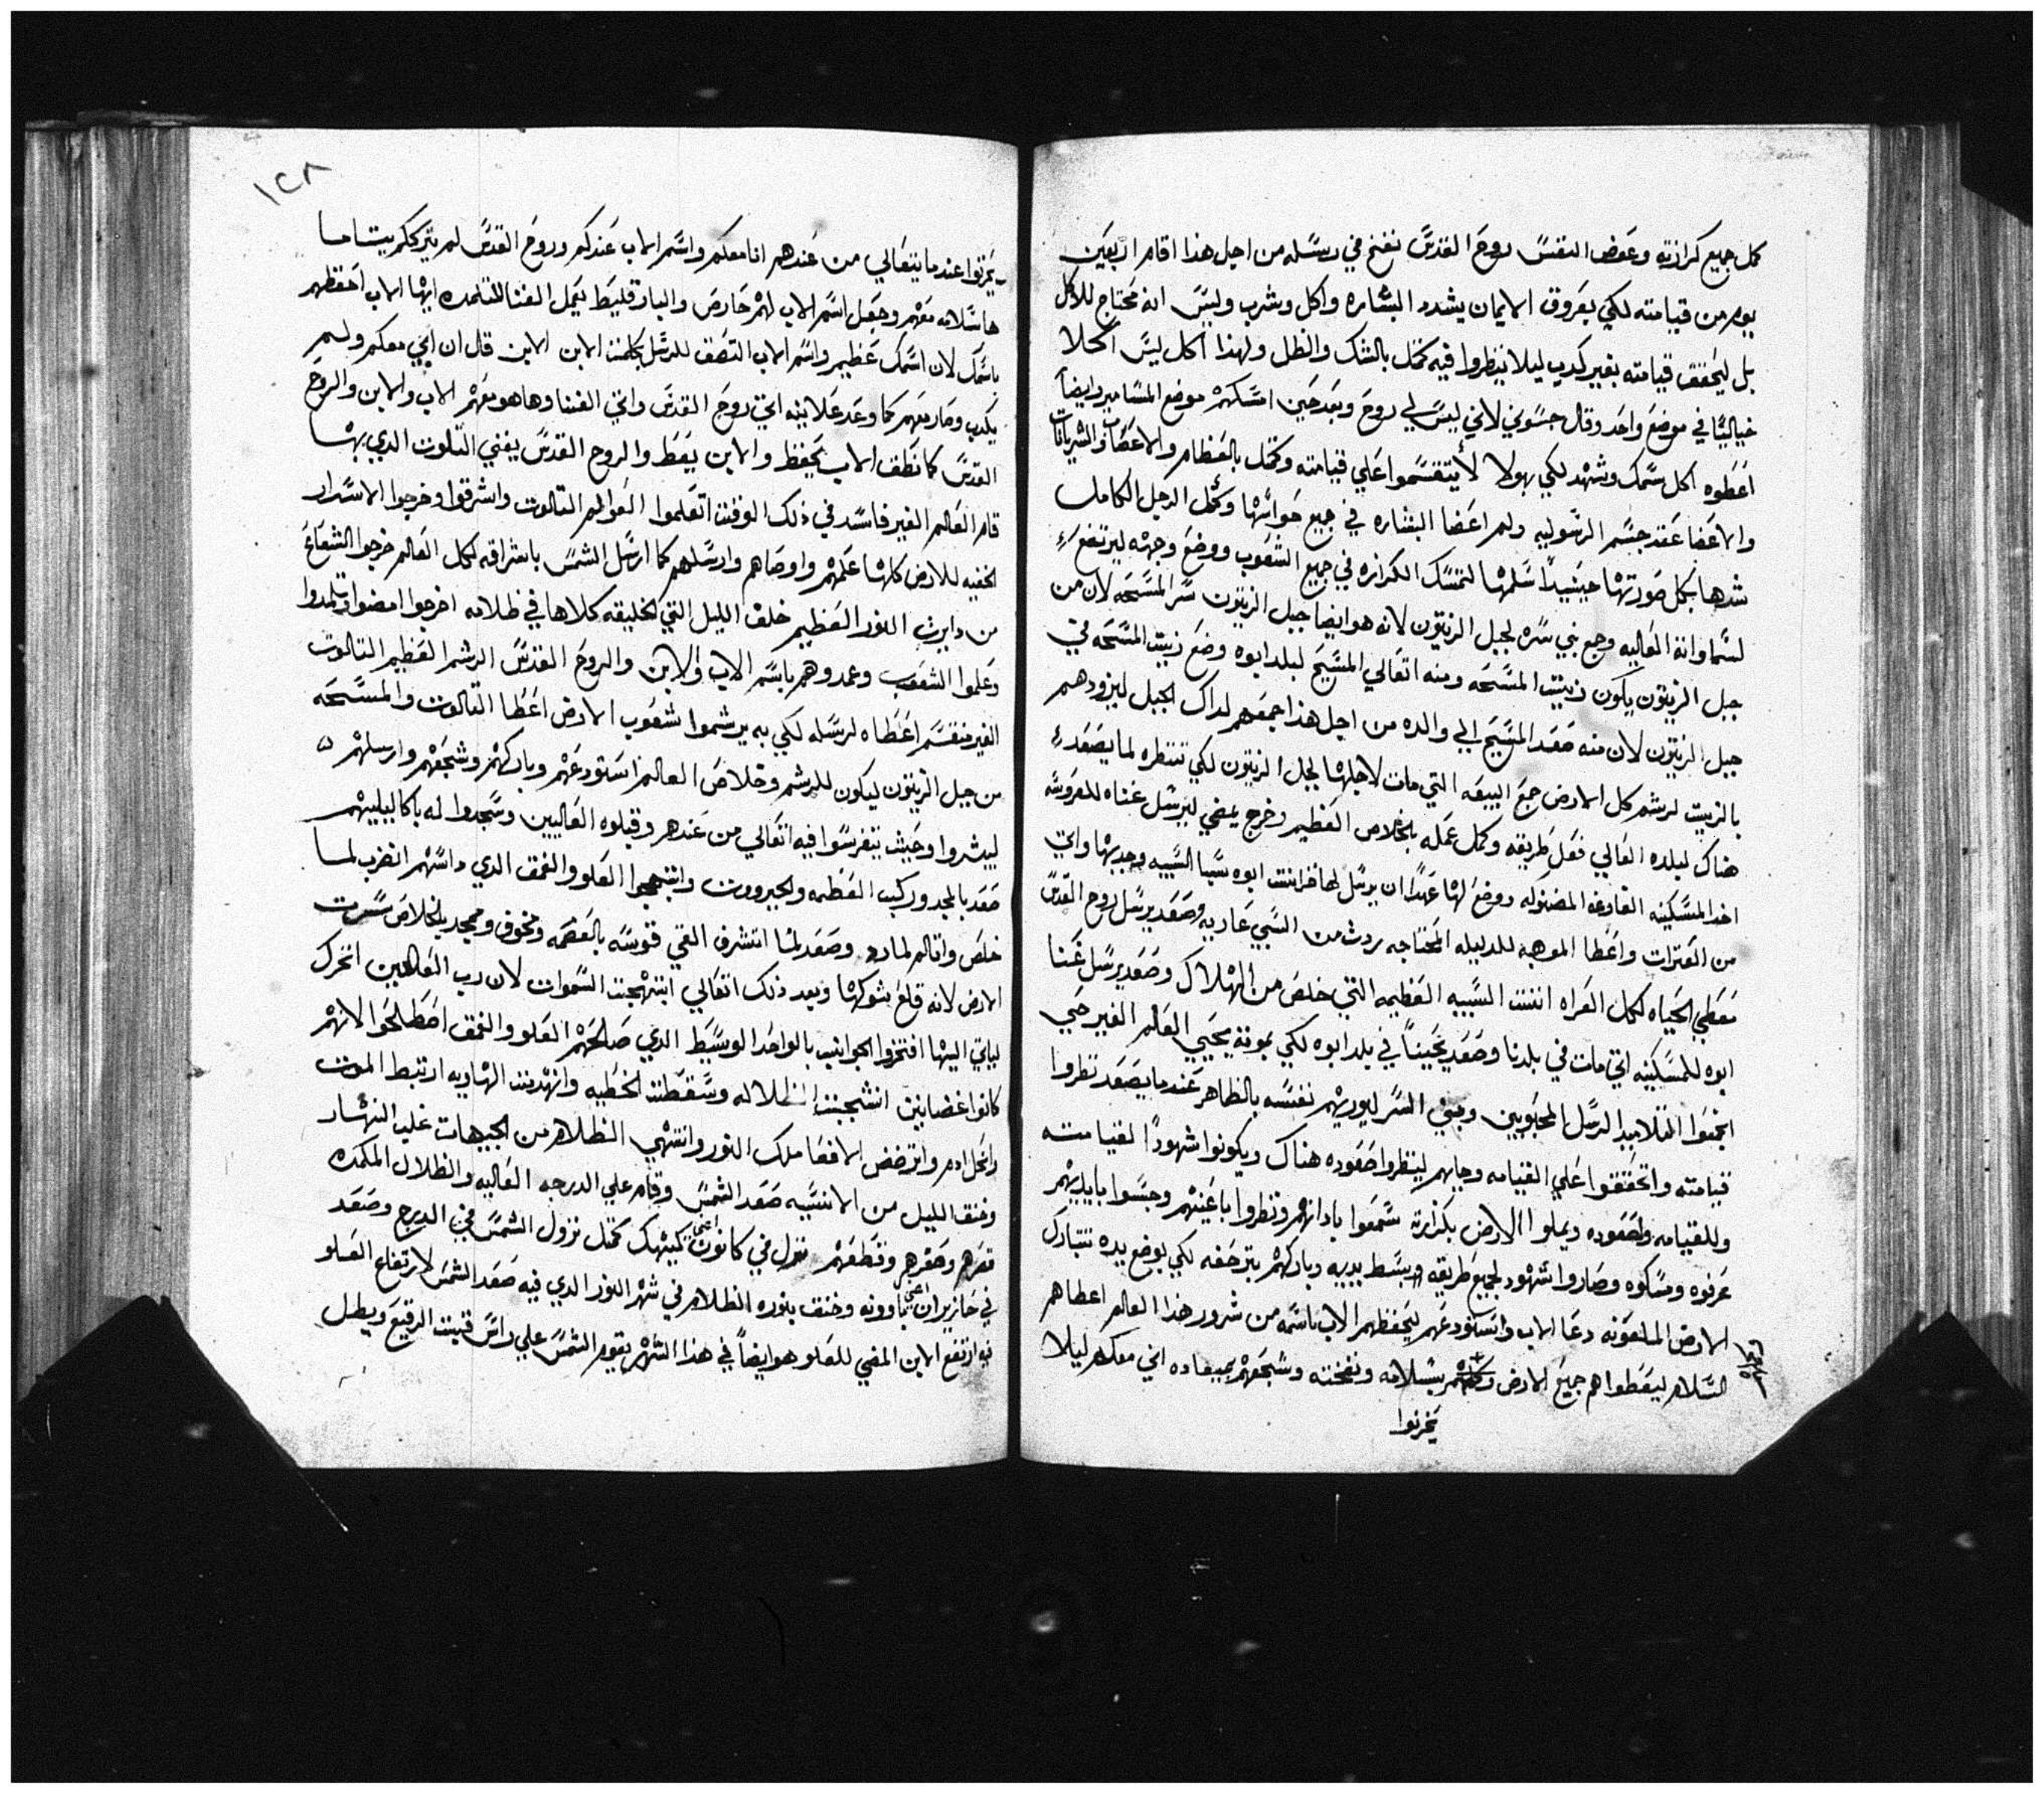 كمل جميع كرازته وعوض النفس روح القدس نفخ في رسله من اجل هذا اقام اربعين
يوم من قيامته لكي بعروق الايمان يشدد البشاره واكل وشرب وليس انه محتاج للاكل
بل ليحقق قيامته بغير كدب ليلا ينظروا فيه كمثل بالشك والظل ولهذا اكل ليس اكلا
خياليا في موضع واحد وقال جسوني لاني ليس لي روح وبعد حين امسكهم موضع المسامير وايضا
اعطوه اكل سمك وشهد لكي بهولا لا يتقسموا علي قيامته وكمثل بالعظام والاعصاب والشريانات
والاعضا عقد جسم الرسوليه ولم اعضا البشاره في جميع حواسها وكمل الرجل الكامل
شدها بكمل صورتها حينيدا سلمها لتمسك الكرازه في جميع الشعوب ووضع وجهه ليرتفع
لسماواته العاليه وجمع بني سره لجبل الزيتون لانه هو ايضا جبل الزيتون سر المسحه لان من
جبل الزيتون يكون زيت المسحه ومنه اتعالي المسيح لبلد ابوه وضع زيت المسحه في
جبل الزيتون لان منه صعد المسيح الي والده من اجل هذا جمعهم لداك الجبل ليزودهم
بالزيت لرشم كل الارض جمع البيعه التي مات لاجلها لجبل الزيتون لكي تنتظره لما يصعد
هناك لبلده العالي فعل طريقه وكمل عمله بالخلاص العظيم وخرج يمضي ليرسل غناه للعروسه
اخد المسكينه الفارغه المضنوله ووضع لها عهدا ان يرسل لها خزاينت ابوه سبا السبيه وجدبها واتي
من العترات واعطا الموهبه للدليله المحتاجه ردت من السبي عاريه وصعد يرسل روح القدس
معطي الحياه لكمل العراه انتنت السبيه العظيمه التي خلص من الهلاك وصعد يرسل غنا
ابوه للمسكينه التي مات في بلدنا وصعد يحيينا في بلد ابوه لكي بموته يحيي العالم الغير حي
اجمعوا التلاميد الرسل المحبوبين وبني السر ليوريهم نفسه بالظاهر عندما يصعد نظروا
قيامته واتحققوا علي القيامه وجابهم لينظروا صعوده هناك ويكونوا شهودا لقيامته
وللقيامه ولصعوده ويملوا الارض بكرازته سمعوا بادانهم ونظروا باعينهم وجسوا بايديهم
عرفوه ومسكوه وصاروا شهود لجميع طريقه وبسط يديه وباركهم بترحفه لكي بوضع يده تتبارك
الارض الملعونه دعا الاب واستودعهم ليحفظهم الاب باسمه من شرور هذا العالم اعطاهم
السلام ليعطوا هم جميع الارض وكلهم بسلامه ونفخته وشجعهم بميعاده اني معكم ليلا
يحزنوا
١٢٨
يحزنوا عندما يتعالي من عندهم انا معكم واسم الاب عندكم وروح القدس لم يترككم يتاما
ها سلامه معهم وجعل اسم الاب لهم حارص والبارقليط يكمل الغنا للتلمده ايها الاب احفظهم
باسمك لان اسمك عظيم واسم الاب التصف للرسل بكلمت الابن الابن قال ان ابي معكم ولم
يكدب وصار معهم كما وعد علانيه اتي روح القدس واتي الغننا وها هو معهم الاب والابن والروح
القدس كما نطف الاب يحفظ والابن يعط والروح القدس يغني التلوت الدي بهما
قام العالم الغير فاسد في ذلك الوقت اتعلموا العوالم التالوت واشرقوا وخرجوا الاسرار
الخفيه للارض كلها علمهم واوصاهم وارسلهم كما ارسل الشمس باشراقه لكمل العالم خرجوا الشعاع
من دايرت النور العظيم خلف الليل التي الخليقه كلاها في ظلامه اخرجوا امضوا وتلمدوا
وعلموا الشعوب وعمدوهم باسم الاب والابن والروح القدس الرشم العظيم التالوت
الغير منقسم اعطاه لرسله لكي به يرشموا شعوب الارض اعطا التالوت والمسحه
من جبل الزيتون ليكون للرشم وخلاص العالم استودعهم وباركهم وشجعهم وارسلهم
ليبشروا وحيث يتفرسوا فيه اتعالي من عندهم وقبلوه العاليين وسجدوا له باكاليليهم
صعد بالمجد وركب العظمه والجبرووت وابتهجوا العلو والعمق الدي داسهم انضرب لما
خلص واتالم لما رد وصعد لما انتشرف القي قوسه بالعصمه ومخوف وممجد بالخلاص سرت
الارض لانه قلع شوكها وبعد ذلك اتعالي ابتهجت السموات لان رب العالمين اتحرك
لياتي اليها افتخروا الجوانيب بالواحد الوسيط الدي صالحهم العلو والعمق اصطلحوا لانهم
كانوا غضابنين انشجبت الظلاله وسقطت الخطيه وانهدمت الهاويه ارتبط الموت
وانحل ادم واترضض الافعا ملك النور وانتهي الظلام من الجيهات غلب النهار
وخنق الليل من الانسيه صعد الشمس وقام علي الدرجه العاليه والظلال المكمده
قهرهم وحقرهم وقطعهم نزول في كانون اعني كيهك كمثل نزول الشمس في الدرج وصعد
في حازيران اعني باوونه وخنق بنوره الظلام في شهر النور الدي فيه صعد الشمس لارتفاع العلو
فيه ارتفع الابن المضي للعلو هو ايضا في هذا الشهر يقوم الشمس علي راس قبت الرقيع ويطل